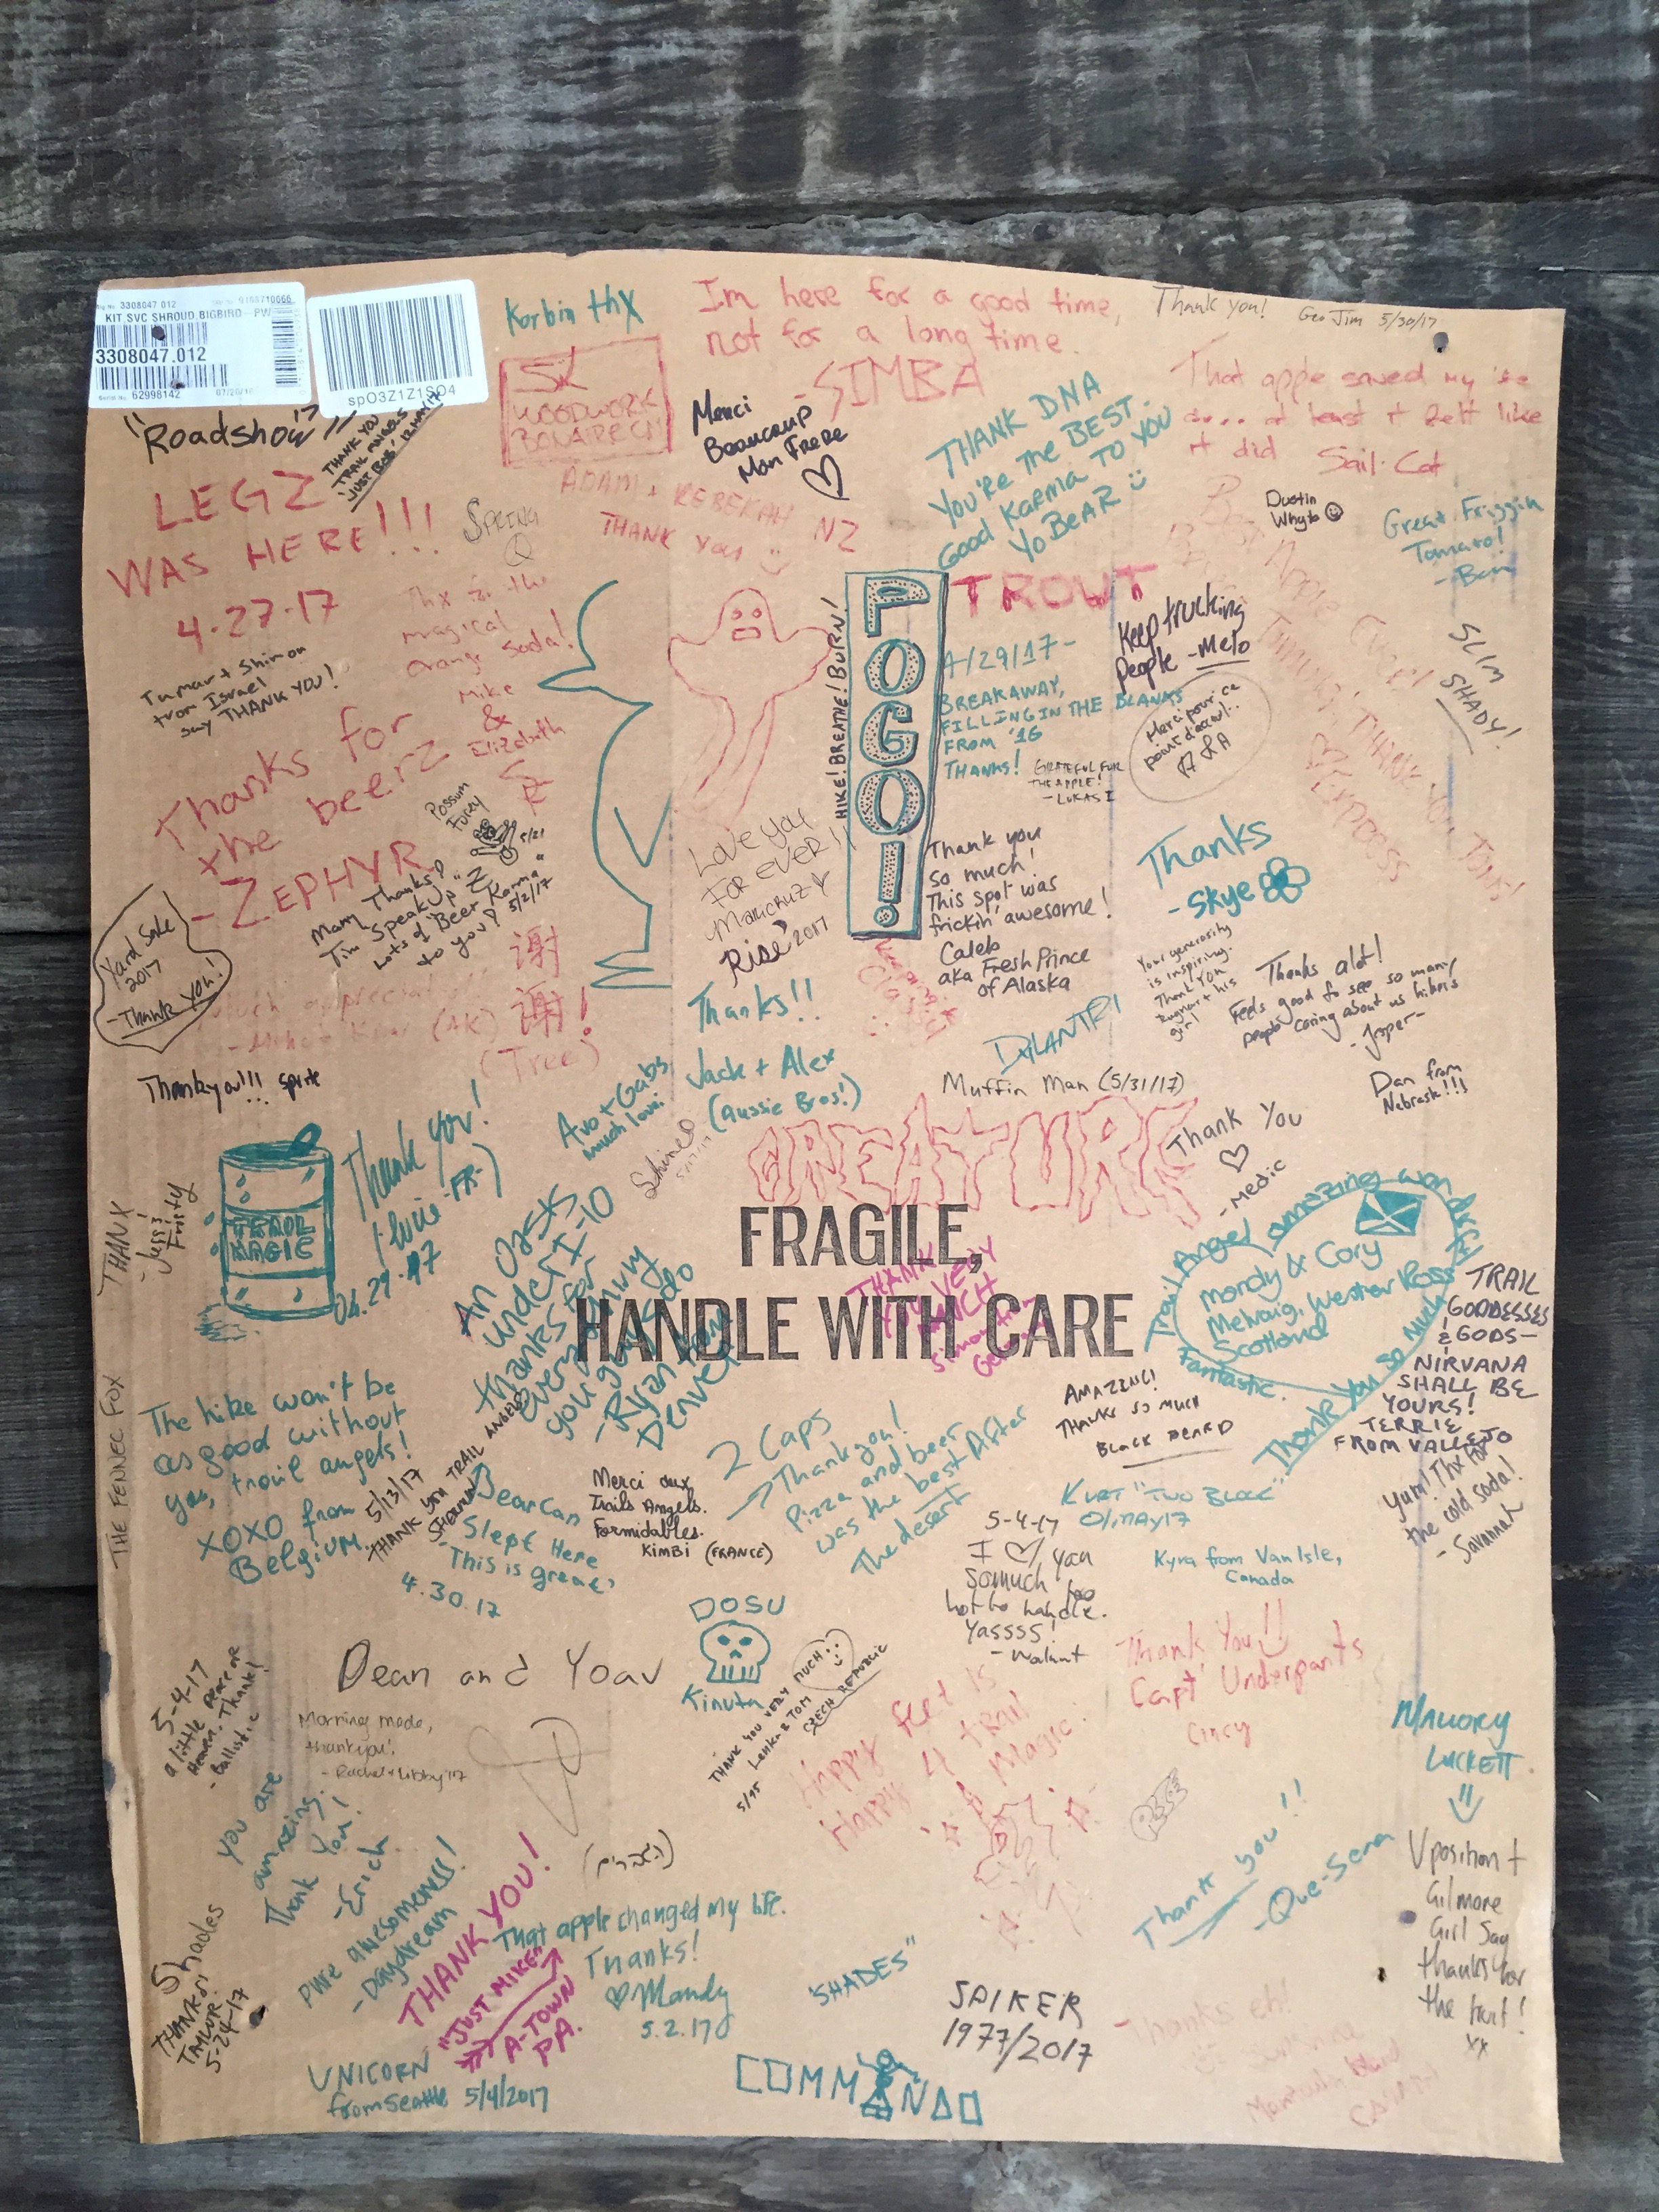 3308047.012
KIT SVC SHROUD,BIGBIRD-PW
3308047.012
62998142
spO3Z1Z1SO4
Korbin thx
Im here for a good time,
not for a long time.
- SIMBA
Thank you!
Geo Jim 5/30/17
"Roadshow"
THANK YOU
TRAIL ANGELS
"JUST BOB"
SK
WOODWORK
Merci
Beaucoup
Mon Frere
THANK DNA
You're the BEST.
Good Karma TO YOU
Yo BeAR
That apple saved my life
.... at least it felt like
it did Sail-Cat
LEGZ
WAS HERE!!!
4-27-17
SPRING
ADAM + REBEKAH NZ
THANK YOU
Dustin
Whyte
Great Friggin
Tomato!
- Ben
Thx for the
magical
orange soda!
Mike
&
Elizabeth
Tamar + Shimon
from Israel
say THANK YOU!
HIKE! BREATHE! BURN!
POGO!
TROUT
4/29/17-
BREAKAWAY,
FILLING IN THE BLANKS
FROM '16
THANKS!
Keep trucking
People - Melo
Merci pour ce
point d'eau!..
A & A
GRATEFUL FOR
THE APPLE!
- LUKAS I
SLIM
SHADY!
Thanks for
the beerz
- ZEPHYR
Possum
Furey
5/21
Many Thanks
Tim "Speak Up" Z
Lots of "Beer Karma"
to you! 5/2/17
Love you
FOR EVER!!
Rise 2017
Thank you
so much!
This spot was
frickin' awesome!
Caleb
aka Fresh Prince
of Alaska
Thanks
- Skye
Yard Sale
2017
- Thank you!
谢
谢!
(Tree)
Much appreciation
Your generosity
is inspiring.
Thank you
Thanks alot!
Feels good to see so many
people caring about us hikers
- Jesper -
Thanks!!
Jack + Alex
(Aussie Bros!)
DYLANTRI
Muffin Man (5/31/17)
Dan from
Nebrask!!!
Thankyou!!! Sprite
Avo + Gabs
much love!
CREATURE
Thank You
- Medic
TRAIL
MAGIC
Thank you!
04.29.17
THANX
- Jussi
Frosty
FRAGILE,
HANDLE WITH CARE
THANK
YOU VERY
MUCH
An Oasis
under I-10
thanks for
everything
you guys do
- Ryan from
Denver
Trail Angel amazing wonderful
Mordy & Cory
Melvaig, Wester Ross
Scotland
Fantastic.
Thank you so much
TRAIL
GODDESSES
& GODS-
NIRVANA
SHALL BE
YOURS!
TERRIE
FROM VALLEJO
THE FENNEC FOX
The hike won't be
as good without
you, trail angels!
XOXO from
Belgium.
5/13/17
THANK YOU TRAIL ANGELS
- SHERMAN
AMAZING!
THANKS SO MUCH
BLACK BEARD
2 Caps
Thank you!
Pizza and beer
was the best After
The desert
Yum! Thx for
the cold soda!
- Savannah
BearCan
Slept Here
This is great!
4.30.17
Merci aux
Trails Angels.
Formidables.
KIMBI (FRANCE)
KURT "TWO BLOCK"
01/MAY17
5-4-17
I ♡ you
so much too
hot to handle.
Yassss!
- Walnut
Kyra from Van Isle,
Canada
DOSU
Kinuta
Dean and Yoav
THANK YOU VERY MUCH
Lenka & Tom
CZECH REPUBLIC
Thank You!!
Capt' Underpants
Cincy
5-4-17
a little peace of
Heaven. Thanks!
- Ballistic
Morning made,
thankyou!
- Rachel + Libby '17
Happy feet is
Happy 4 trail
Magic.
MALLORY
LUCKETT
You are
amazing.
Thank You!
- Erich
Pure awesomeness!
- Daydream
THANK YOU!
"JUST MIKE"
A-TOWN
PA.
That apple changed my life.
Thanks!
♡ Mandy
5.2.17
Thank you!!
- Que-Sera
Vposition +
Gilmore
Girl Say
thanks for
the fruit!
xx
Shades
THANKS!
TAYLOR
5-24-17
"SHADES"
SPIKER
1977/2017
Thanks eh!
UNICORN
from Seattle 5/4/2017
COMMANDO